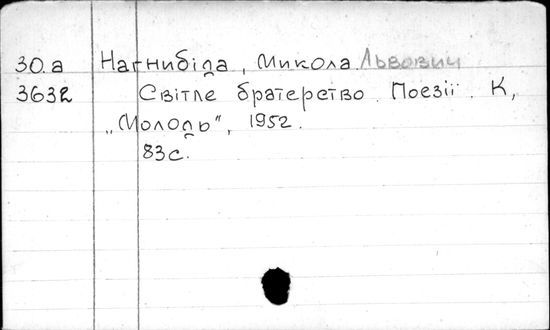 30.а Нагнибіда, Микола Львович
3632 Світле братерство. Поезії. К,
„Молодь", 1952.
83 с.